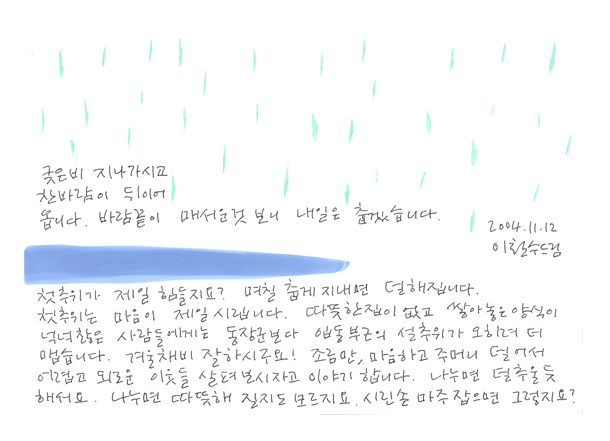 궂은비 지나가시고
찬바람이 뒤이어
옵니다. 바람끝이 매서운것 보니 내일은 춥겠습니다.
2004.11.12
이철수드림
첫추위가 제일 힘들지요? 며칠 춥게 지내면 덜해집니다.
첫추위는 마음이 제일 시립니다. 따뜻한집이 없고 쌓아놓은 양식이
넉넉잖은 사람들에게는 동장군보다 입동부근의 설추위가 오히려 더
맵습니다. 겨울채비 잘하시구요! 조금만, 마음하고 주머니 덜어서
어렵고 외로운 이웃들 살펴보시자고 이야기 합니다. 나누면 덜추울듯
해서요. 나누면 따뜻해 질지도 모르지요. 시린손 마주잡으면 그렇지요?